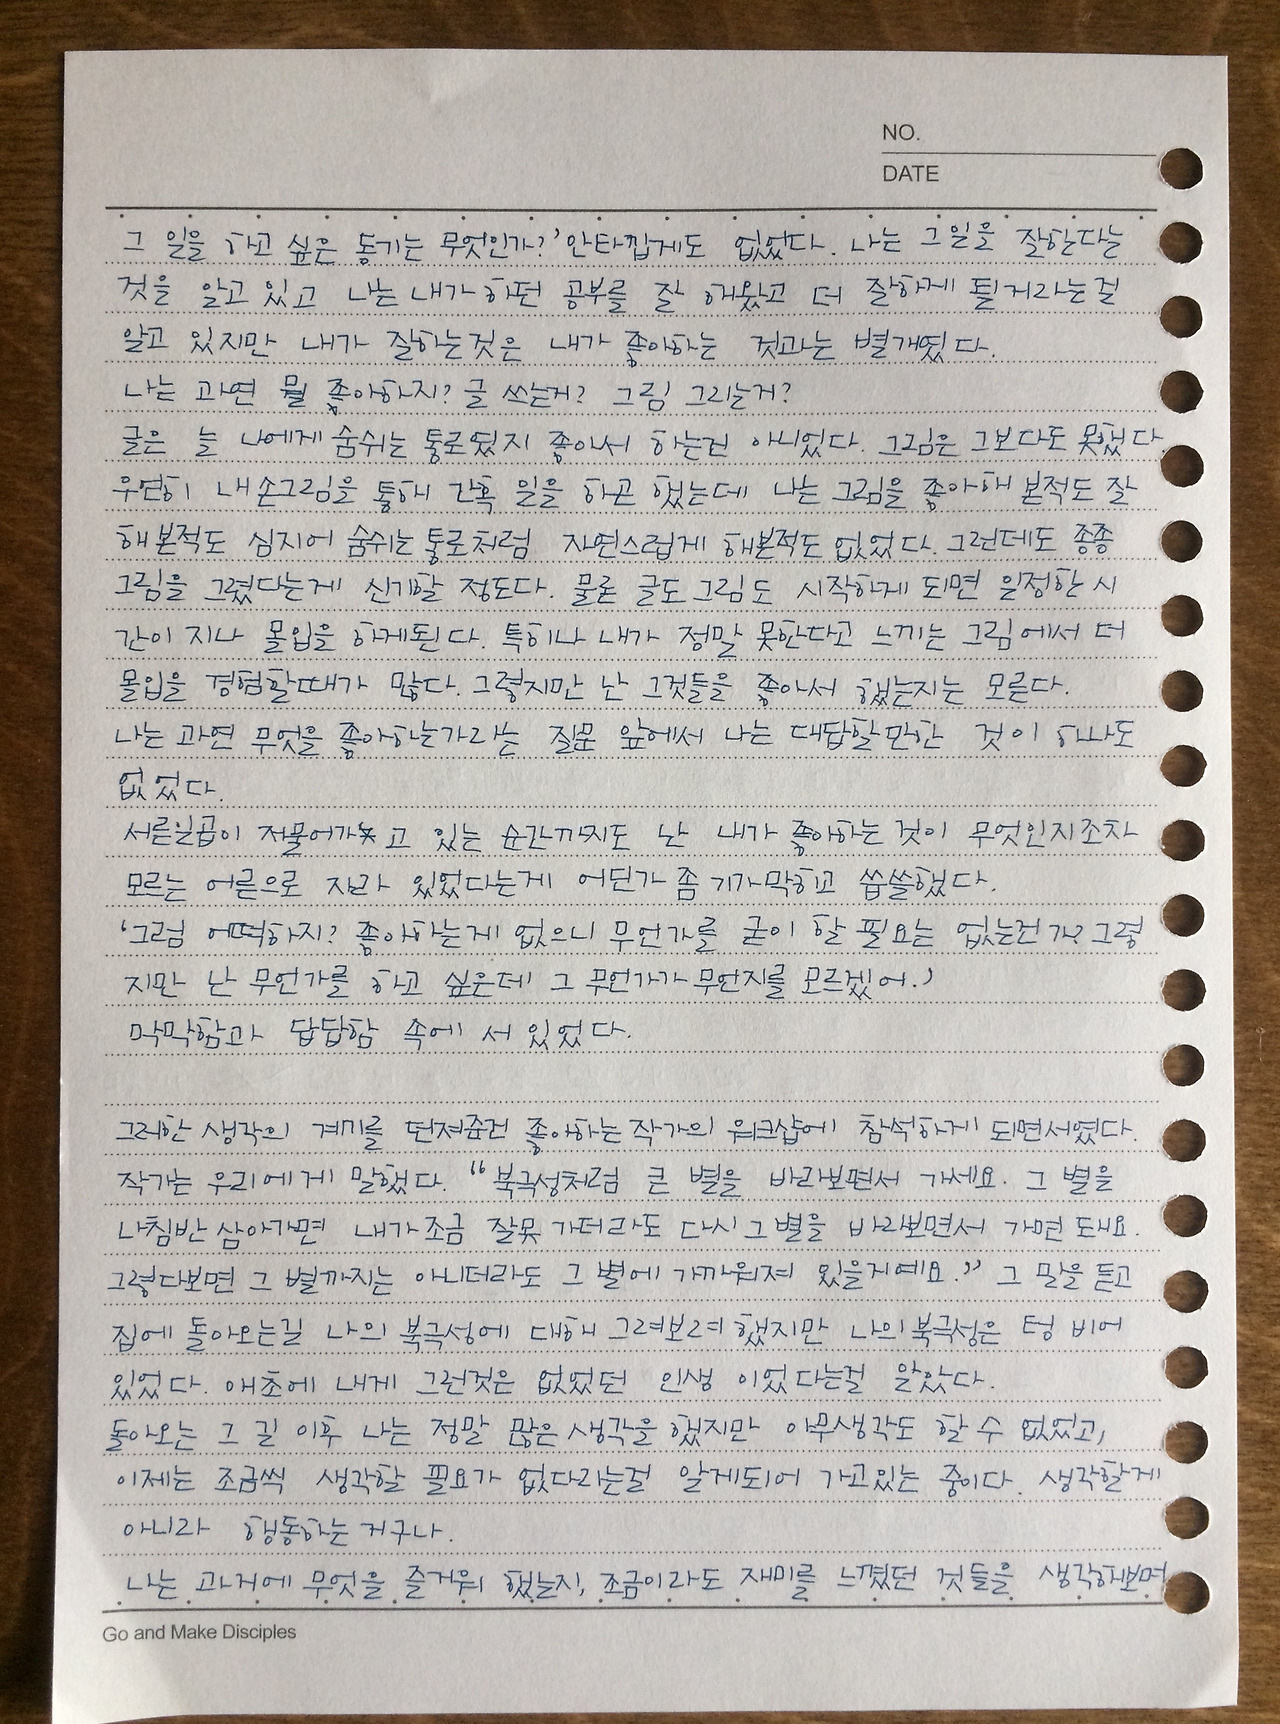 NO.
DATE
그 일을 하고 싶은 동기는 무엇인가?' 안타깝게도 없었다. 나는 그일을 잘한다는
것을 알고 있고 나는 내가 하던 공부를 잘 해왔고 더 잘하게 될거라는걸
알고 있지만 내가 잘하는것은 내가 좋아하는 것과는 별개였다.
나는 과연 뭘 좋아하지? 글 쓰는거? 그림 그리는거?
글은 늘 나에게 숨쉬는 통로였지 좋아서 하는건 아니었다. 그림은 그보다도 못했다
우연히 내 손그림을 통해 간혹 일을 하곤 했는데 나는 그림을 좋아해 본적도 잘
해본적도 심지어 숨쉬는 통로처럼 자연스럽게 해본적도 없었다. 그런데도 종종
그림을 그렸다는게 신기할 정도다. 물론 글도 그림도 시작하게 되면 일정한 시
간이 지나 몰입을 하게된다. 특히나 내가 정말 못한다고 느끼는 그림에서 더
몰입을 경험할때가 많다. 그렇지만 난 그것들을 좋아서 했는지는 모른다.
나는 과연 무엇을 좋아하는가라는 질문 앞에서 나는 대답할만한 것이 하나도
없었다.
서른일곱이 저물어가고 있는 순간까지도 난 내가 좋아하는 것이 무엇인지조차
모르는 어른으로 자라 있었다는게 어딘가 좀 기가막히고 씁쓸했다.
'그럼 어떡하지? 좋아하는게 없으니 무언가를 굳이 할 필요는 없는건가? 그렇
지만 난 무언가를 하고 싶은데 그 무언가가 무언지를 모르겠어.'
막막함과 답답함 속에 서 있었다.
그러한 생각의 계기를 던져준건 좋아하는 작가의 워크샵에 참석하게 되면서였다.
작가는 우리에게 말했다. "북극성처럼 큰 별을 바라보면서 가세요. 그 별을
나침반 삼아가면 내가 조금 잘못 가더라도 다시 그 별을 바라보면서 가면 돼요.
그렇다보면 그 별까지는 아니더라도 그 별에 가까워져 있을거예요." 그 말을 듣고
집에 돌아오는길 나의 북극성에 대해 그려보려 했지만 나의 북극성은 텅 비어
있었다. 애초에 내게 그런것은 없었던 인생 이었다는걸 알았다.
돌아오는 그 길 이후 나는 정말 많은 생각을 했지만 아무생각도 할 수 없었고,
이제는 조금씩 생각할 필요가 없다라는걸 알게되어 가고있는 중이다. 생각할게
아니라 행동하는 거구나.
나는 과거에 무엇을 즐거워 했는지, 조금이라도 재미를 느꼈던 것들을 생각해보며
Go and Make Disciples